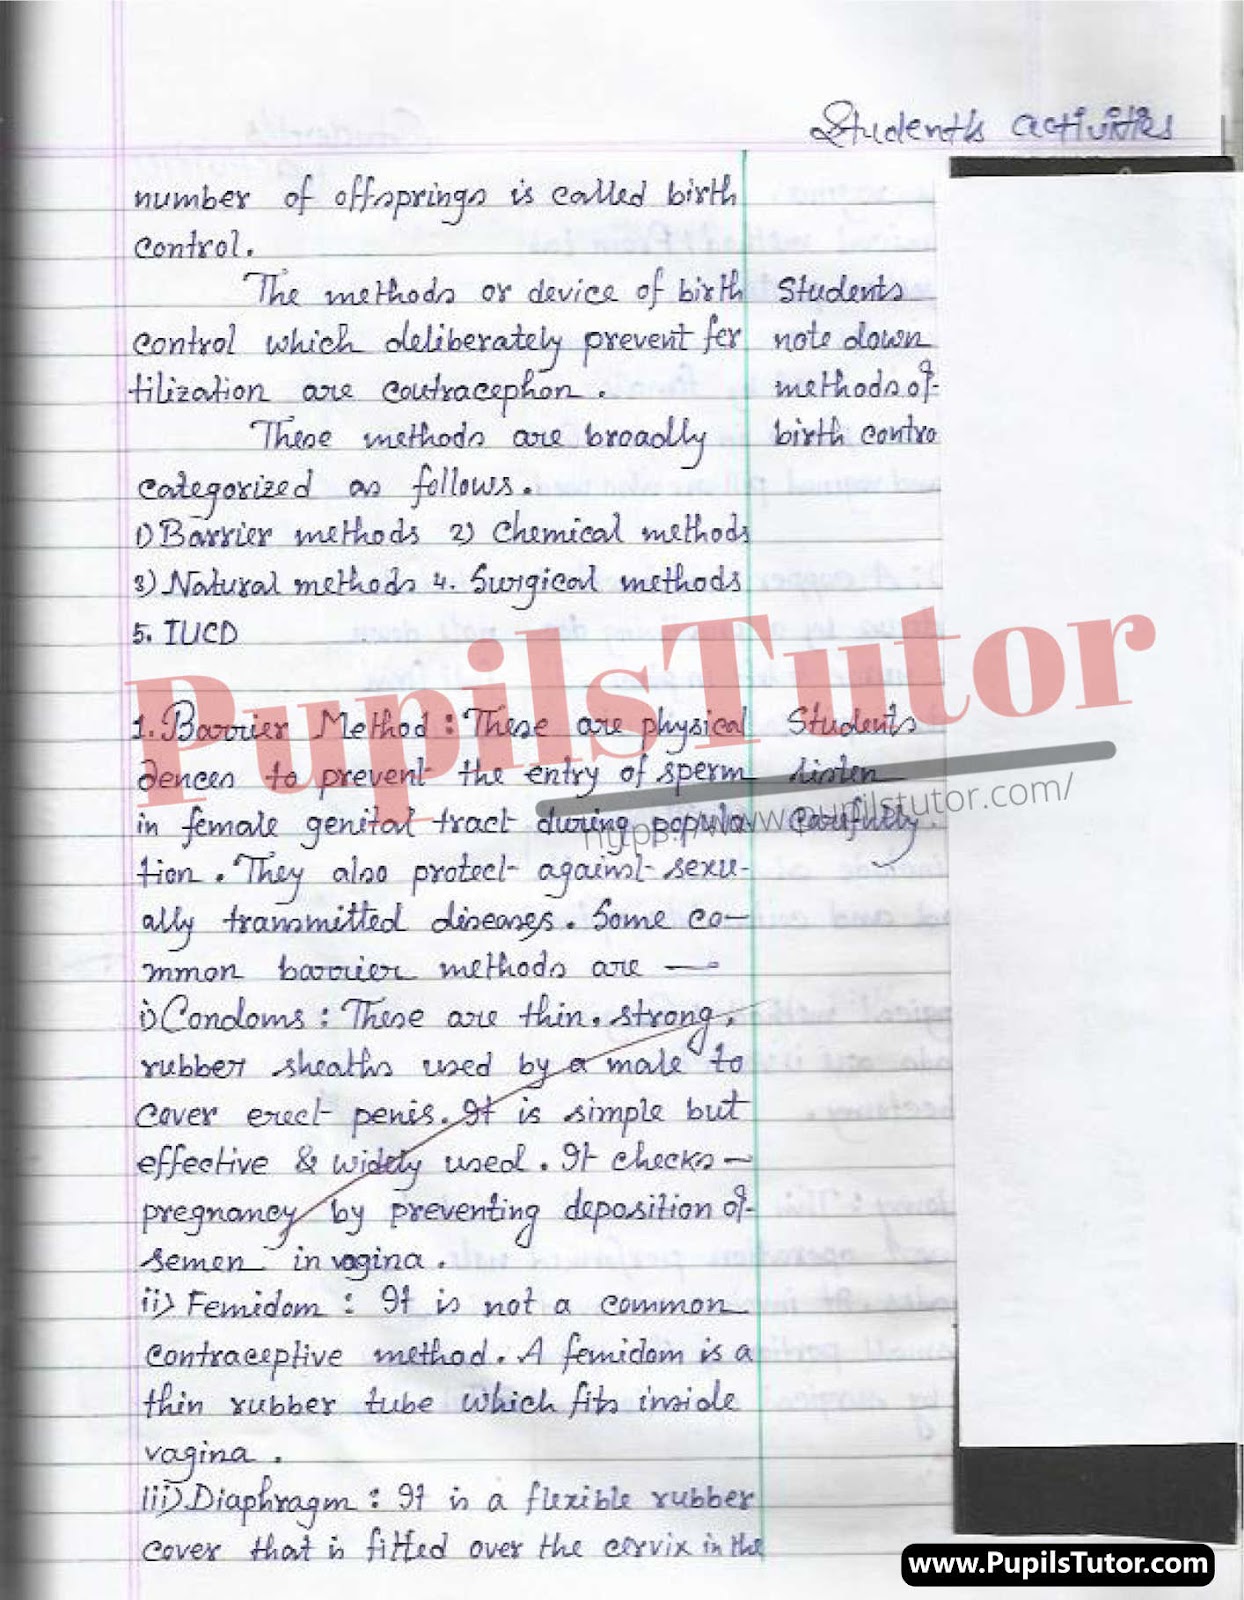 Student's activities
number of offsprings is called birth
control.
The methods or device of birth
control which deliberately prevent fer
tilization are contracephon.
These methods are broadly
categorized as follows.
1) Barrier methods 2) Chemical methods
3) Natural methods 4. Surgical methods
5. IUCD
Students
note down
methods of
birth contro
1. Barrier Method : These are physical
dences to prevent the entry of sperm
in female genital tract during popula
tion. They also protect against sexu-
ally transmitted diseases. Some co-
mmon barrier methods are —
Students
listen
carefully.
i) Condoms : These are thin, strong,
rubber sheaths used by a male to
cover erect penis. It is simple but
effective & widely used. It checks –
pregnancy by preventing deposition of
semen in vagina.
ii) Femidom : It is not a common
contraceptive method. A femidom is a
thin rubber tube which fits inside
vagina.
iii) Diaphragm : It is a flexible rubber
cover that is fitted over the cervix in the
PupilsTutor
https://www.pupilstutor.com/
www.PupilsTutor.com